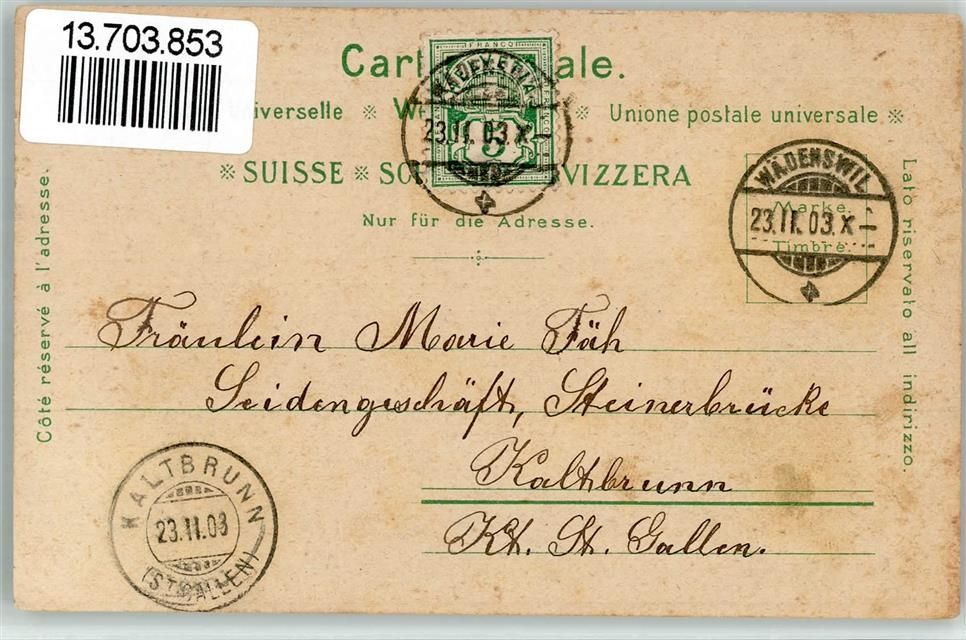 13.703.853
Carte Postale.
Universelle ※ W ※ Unione postale universale ※
※ SUISSE ※ SC VIZZERA
Nur für die Adresse.
FRANCO
5
23.II.03.X–
WÄDENSWIL
23.II.03.X–
Marke.
Timbre.
Côté réservé à l'adresse.
Lato riservato all indirizzo.
Fräulein Marie Fäh
Seidengeschäft, Steinerbrücke
Kaltbrunn
Kt. St. Gallen.
KALTBRUNN
23.II.03
(ST. GALLEN)